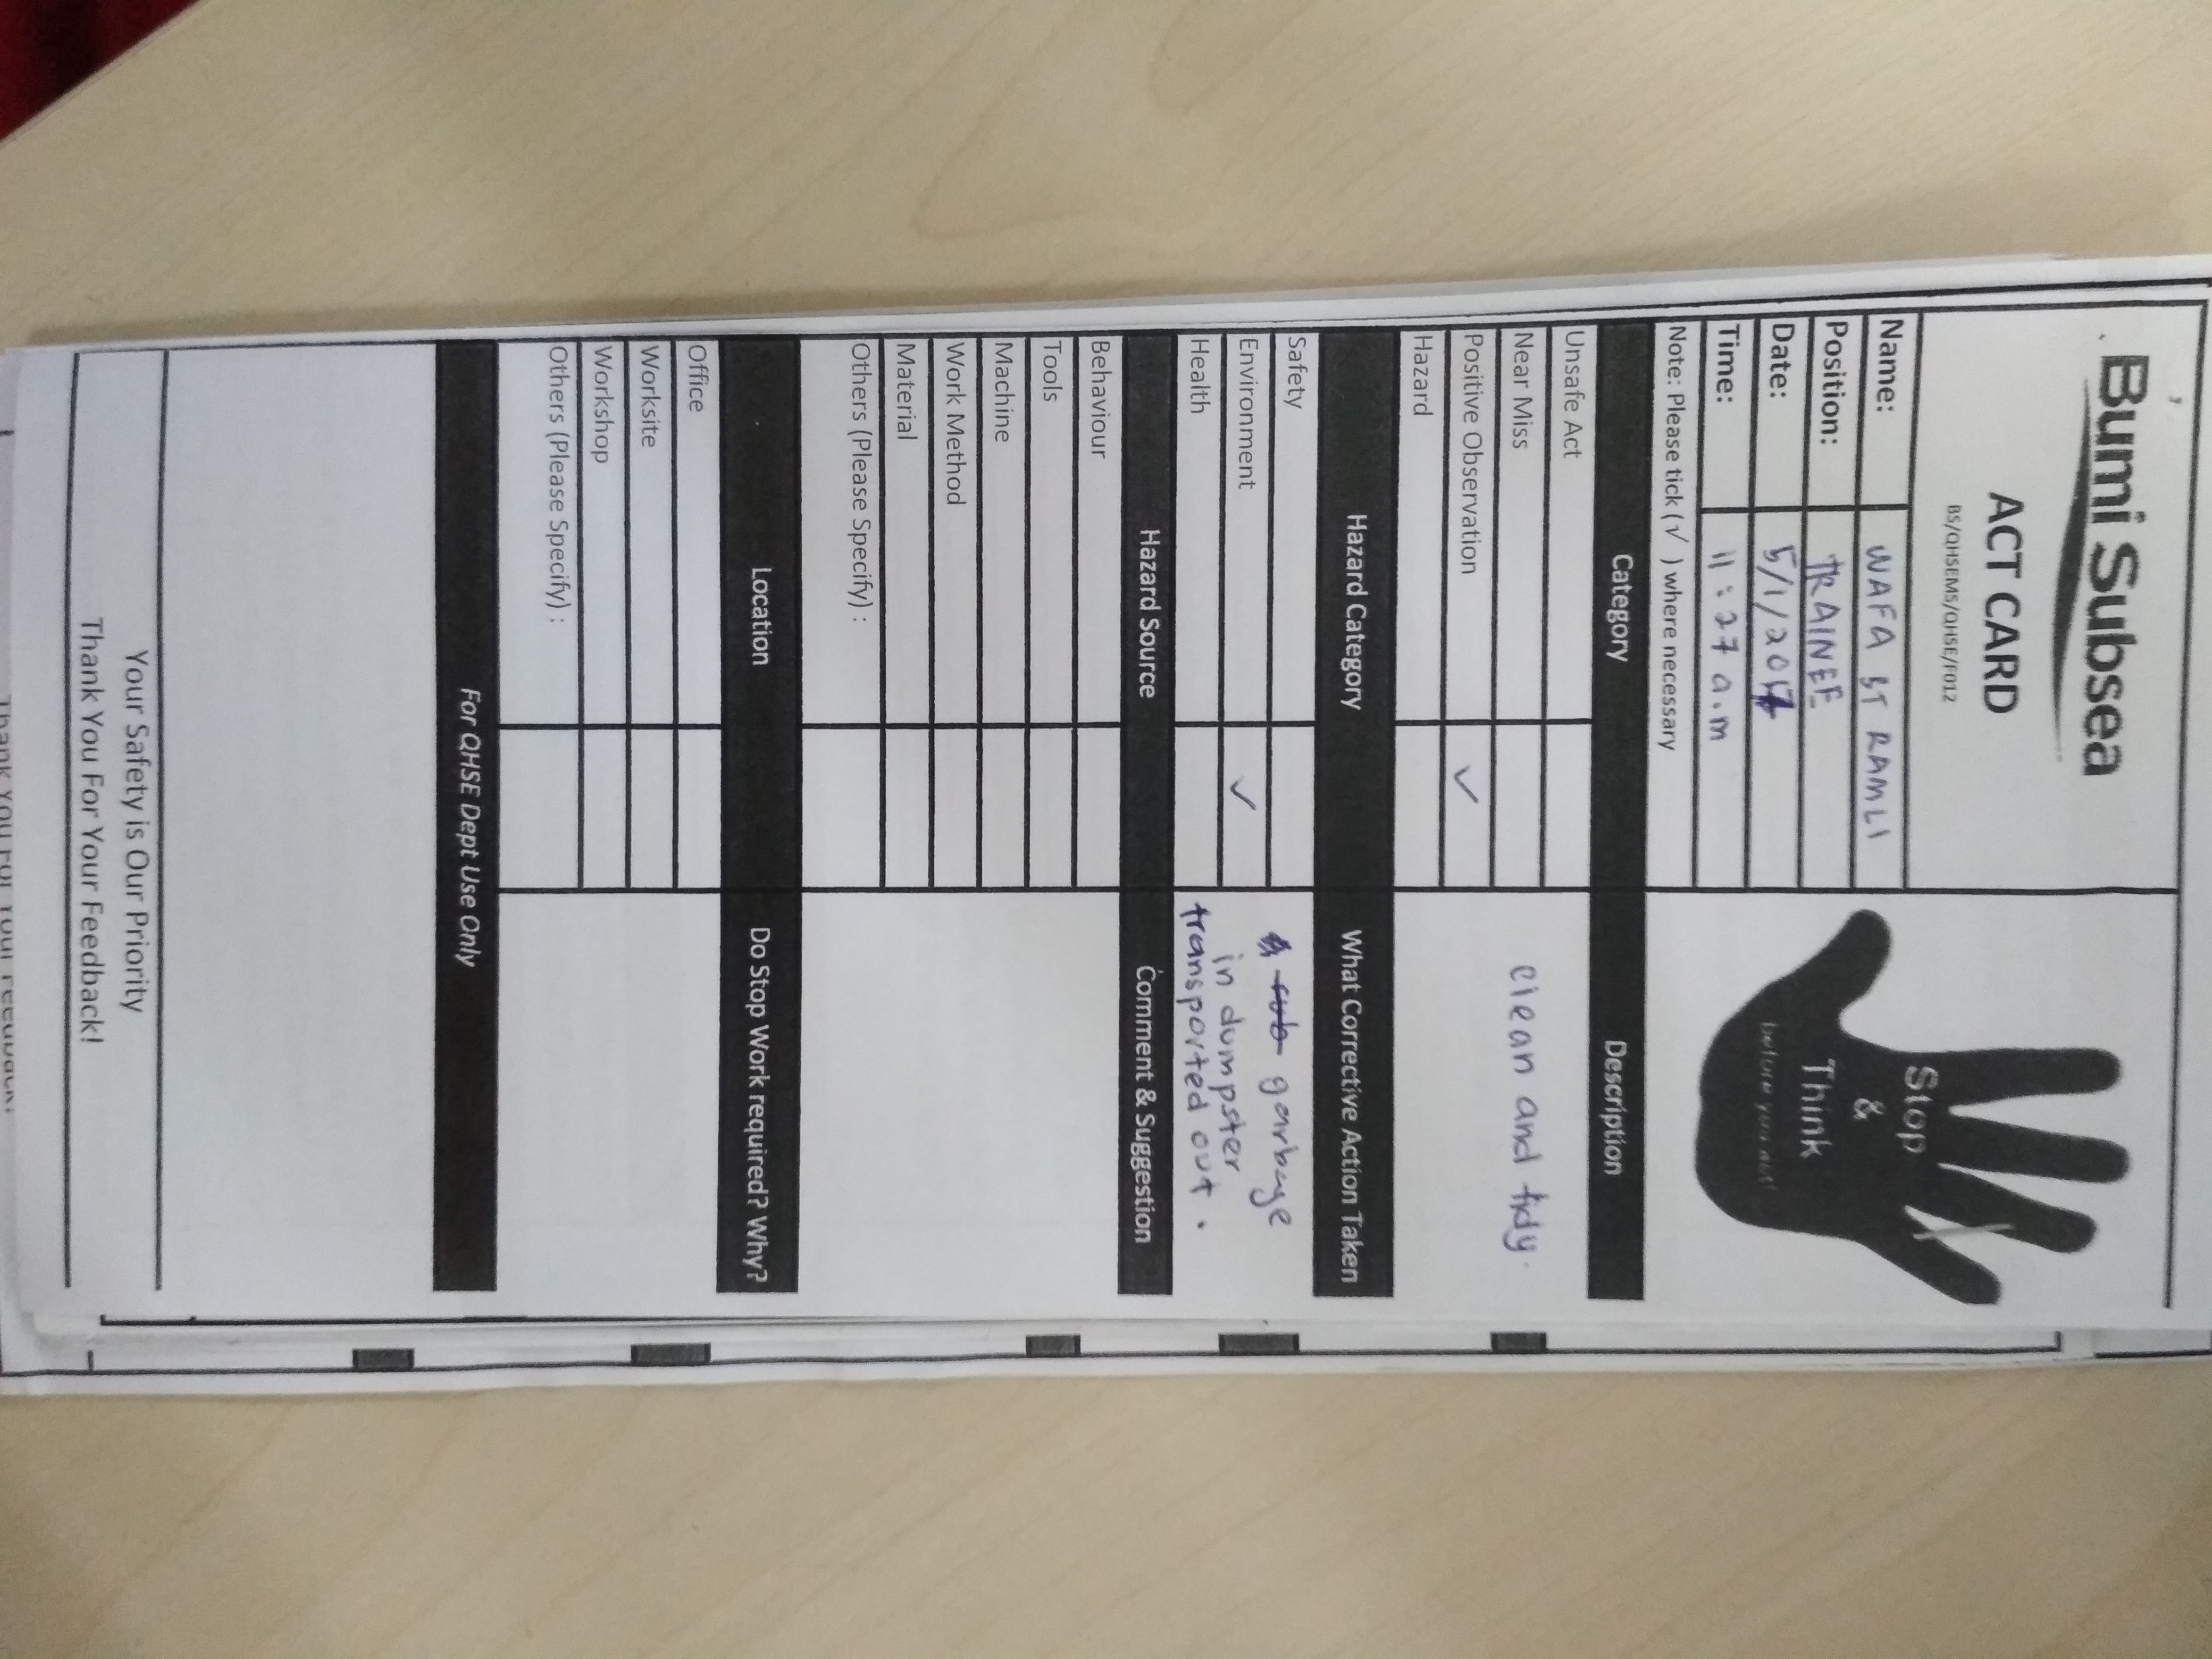 Bumi Subsea
ACT CARD
BS/QHSEMS/QHSE/F012
Stop
&
Think
before you act!
Name: WAFA BT RAMLI
Position: TRAINEE
Date: 5/1/2017
Time: 11:27 a.m
Note: Please tick (√ ) where necessary
Category Description
Unsafe Act
Near Miss clean and tidy.
Positive Observation ✓
Hazard
Hazard Category What Corrective Action Taken
Safety garbage
Environment ✓ in dumpster
Health transported out.
Hazard Source Comment & Suggestion
Behaviour
Tools
Machine
Work Method
Material
Others (Please Specify) :
Location Do Stop Work required? Why?
Office
Worksite
Workshop
Others (Please Specify) :
For QHSE Dept Use Only
Your Safety is Our Priority
Thank You For Your Feedback!
Thank You For Your Feedback!